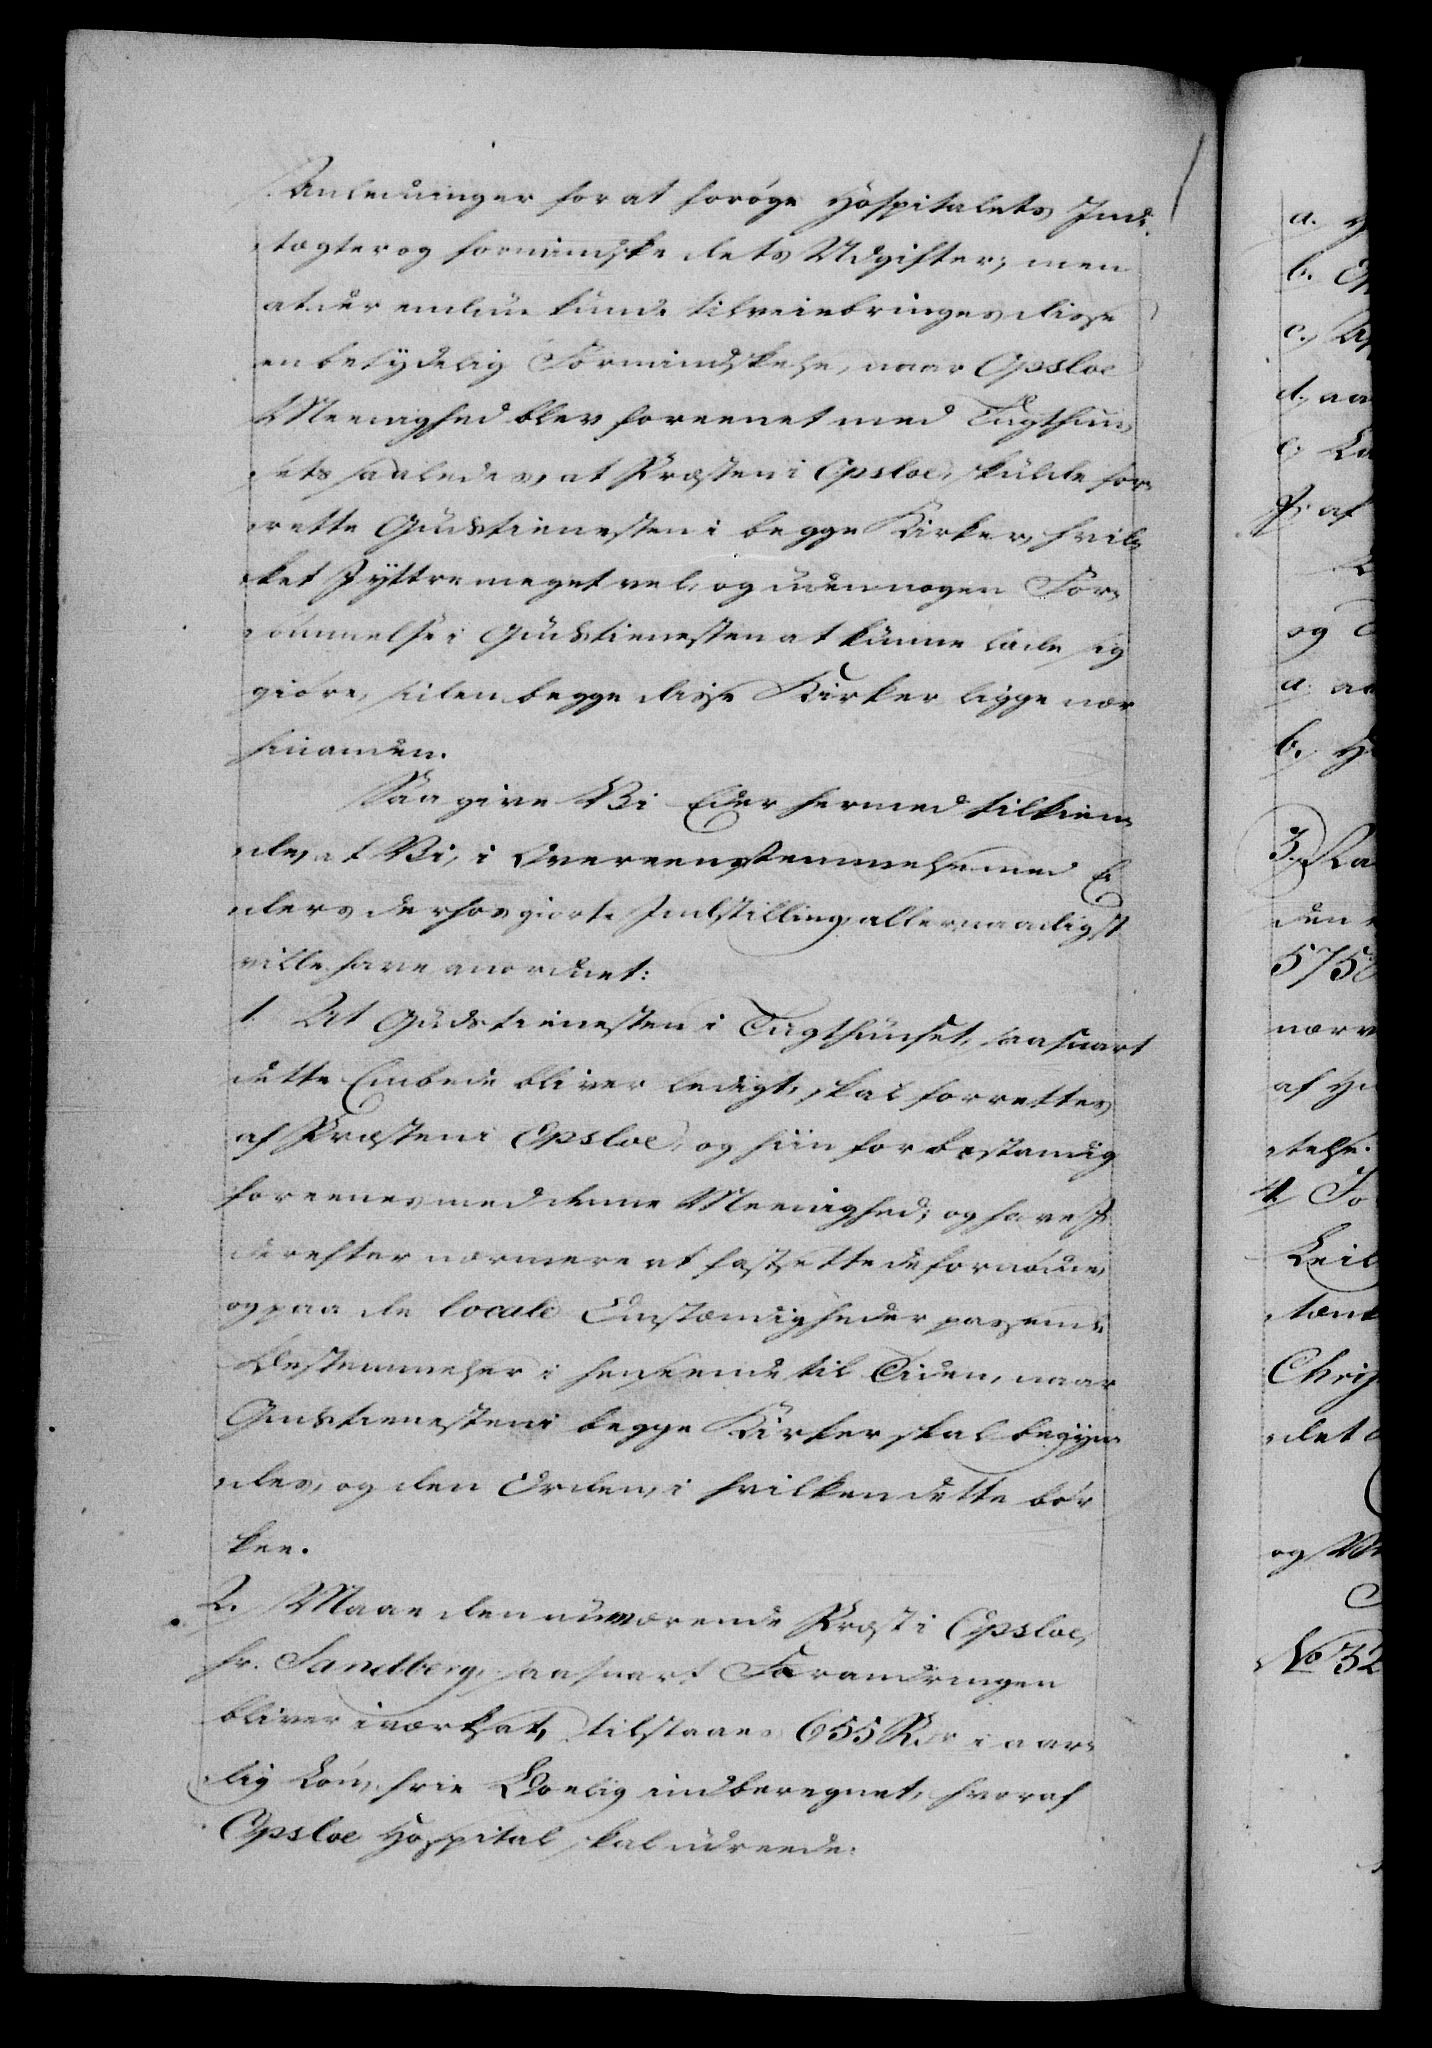 Anledninger for at forøge Hospitalets Ind-
tægter og formindske dets Udgifter; men
at der endnu kunde tilveiebringes disse
en betydelig Formindskelse, naar Opsloe
Meenighed blev foreenet med Tugthuu-
sets saaledes, at Præsten i Opsloe, skulde for-
rette Gudstienesten i begge Kirker, hvil-
ket I yttre meget vel, og uden nogen For-
sømmelse i Gudstienesten at kunne lade sig
giøre, siden begge disse Kirker ligge nær
hinanden.
Saa give Vi Eder hermed tilkien-
de, at Vi, i Overeensstemmelse med E-
ders derhos giorte Indstilling allernaadigst
ville have anordnet:
1. At Gudstienesten i Tugthuuset, saasnart
dette Embede bliver ledigt, skal forrettes
af Præsten i Opsloe, og siin for bestandig
foreenes med denne Meenighed; og have I
derefter nærmere at fastsette de fornødne,
og paa de locale Omstændigheder passende
Bestemmelser i henseende til Tiden, naar
Gudstienesten i begge Kirker skal begyn-
des, og den Orden, i hvilken dette bør
skee.
2. Maae den nuværende Præst i Opsloe,
Hr. Sandberg, saasnart Forandringen
bliver iværksat, tilstaaes 655 Rdr i aar-
lig Løn, frie Boelig indberegnet, hvoraf
Opsloe Hospital skal udreede:
a.
b.
c.
d. aa
e.
f. af
og
a.
b.
3.
den
575
nærv
af
telse.
4.
Leil
tænk
Chri
det
og
No 32